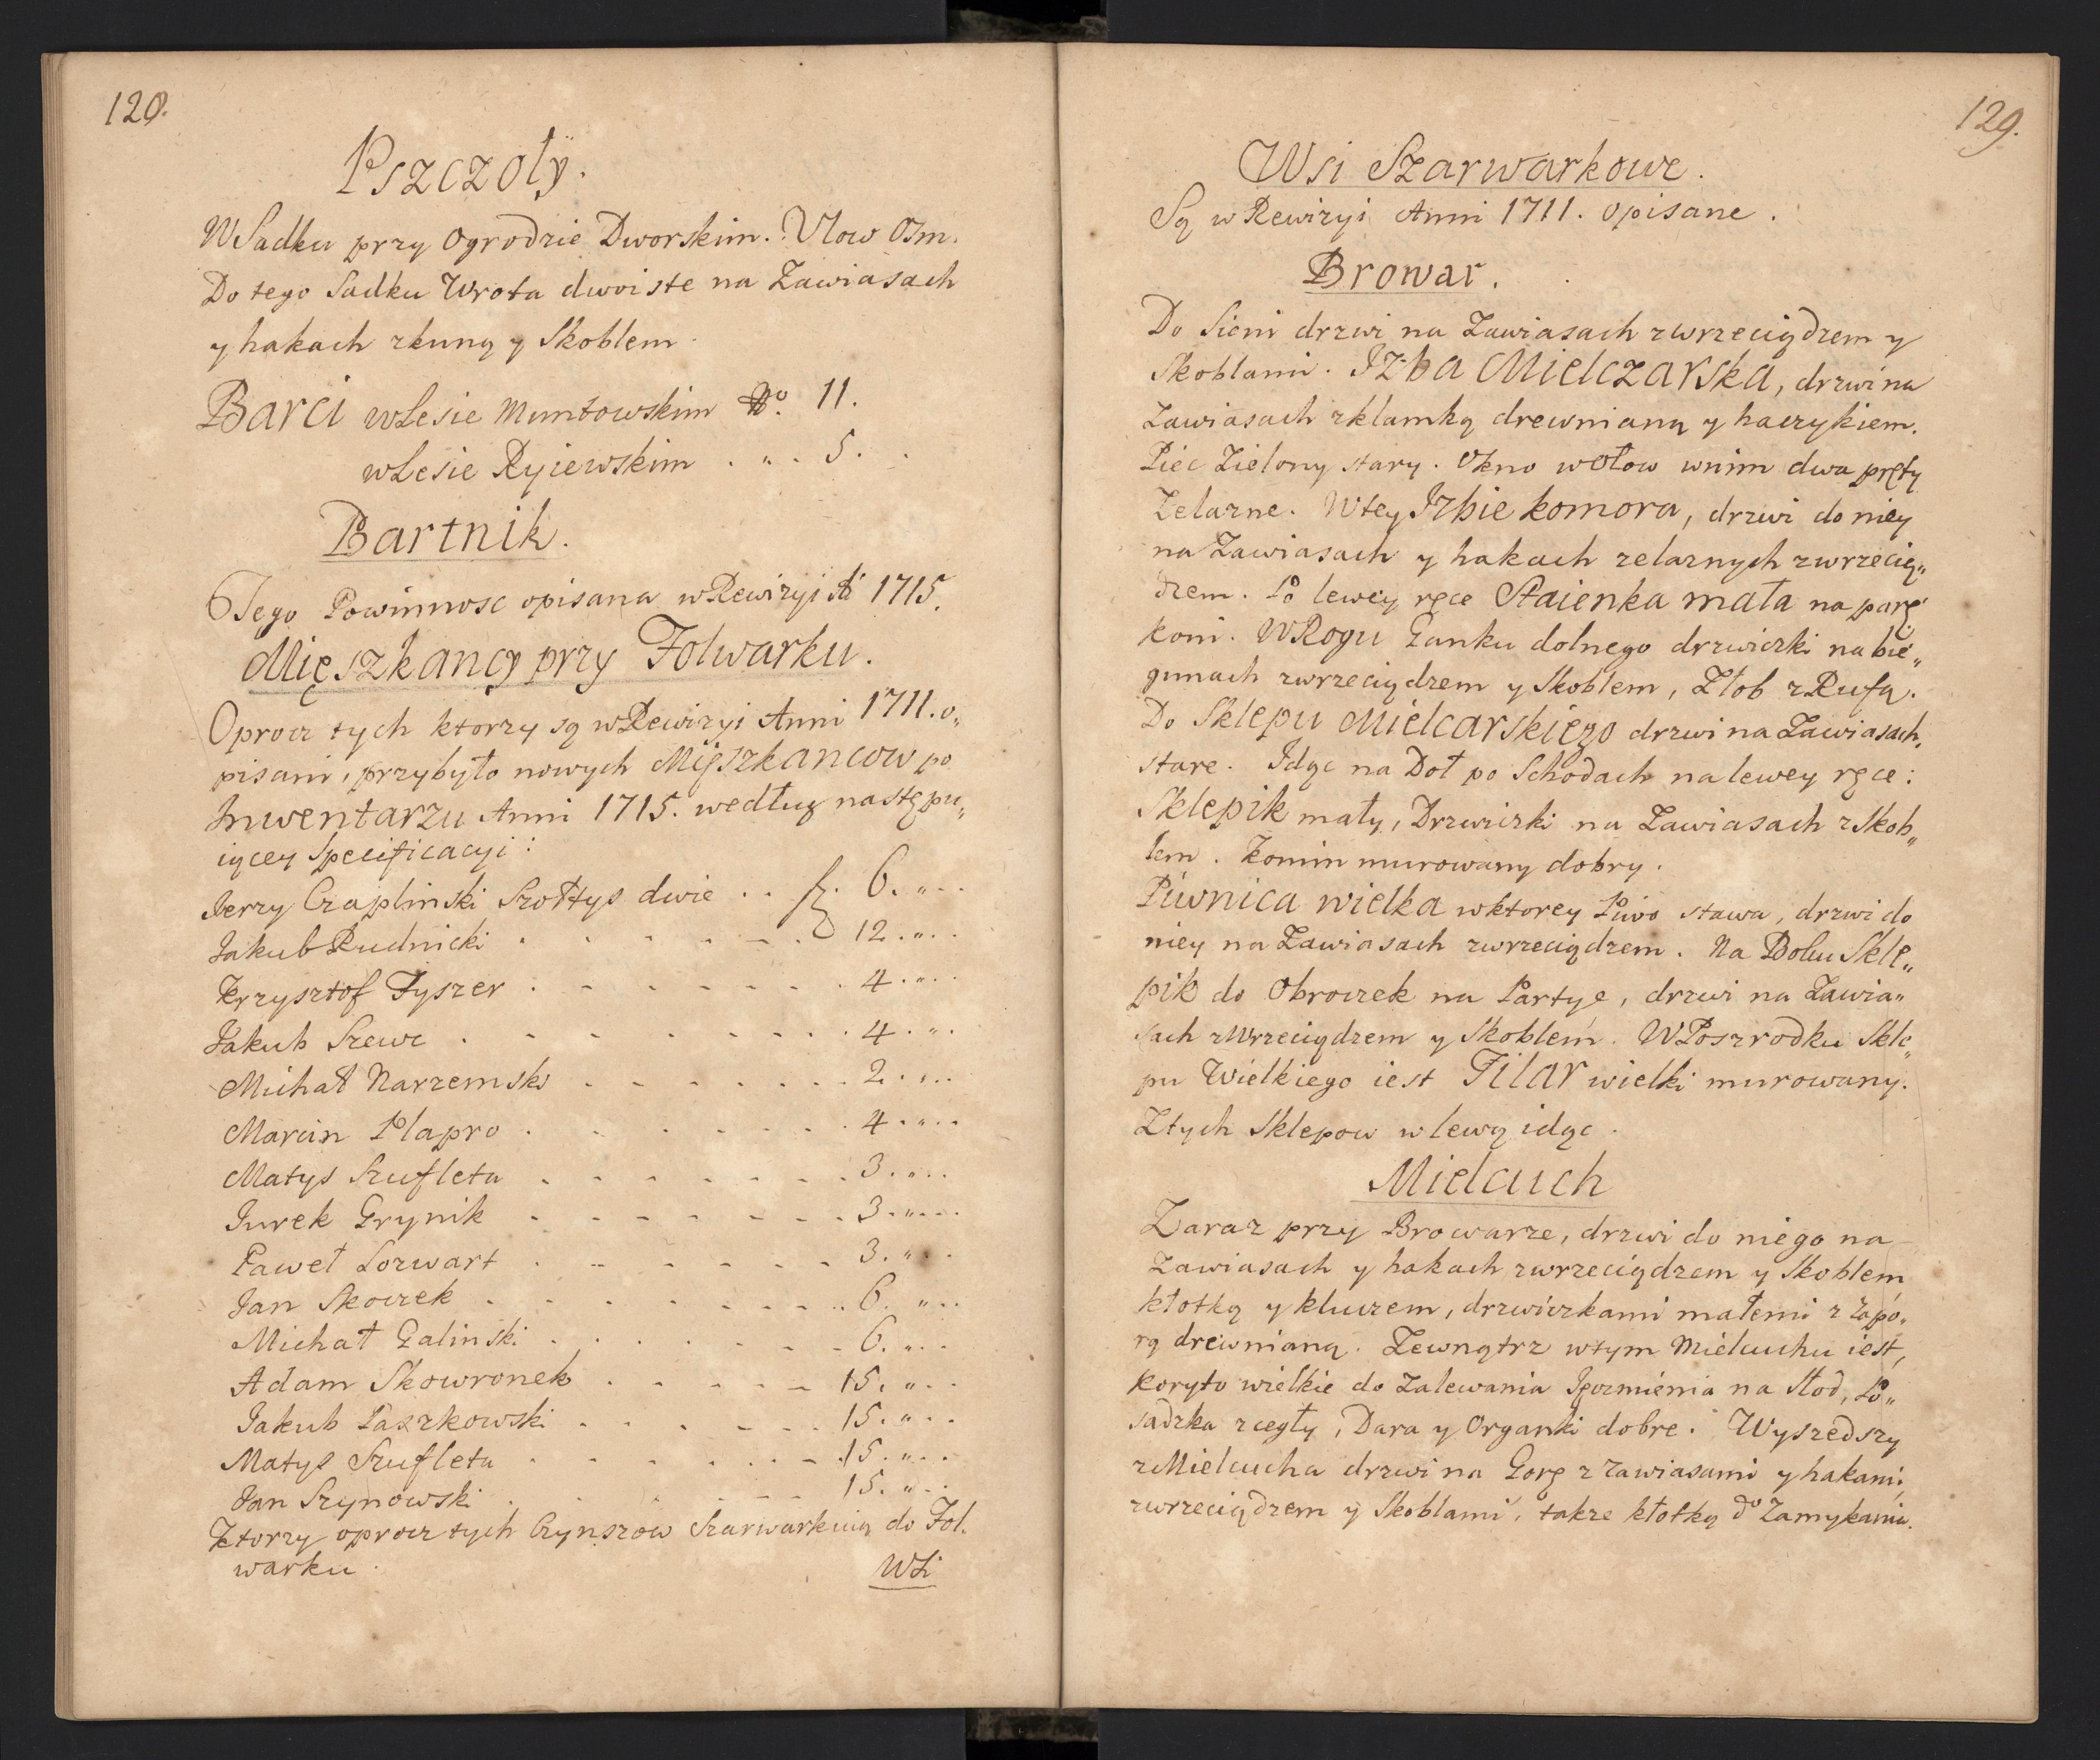 128.
Pszczoły.
W Sadku przy Ogrodzie Dworskim. Ulow Osm.
Do tego Sadku Wrota dwoiste na Zawiasach
y hakach z kuną y Skoblem.
Barci w Lesie Muntowskim No. 11.
w Lesie Ryiewskim . „ . 5. .
Bartnik.
Tego Powinnosc opisana w Rewizyi Ai 1715.
Mięszkancy przy Folwarku.
Oprocz tych ktorzy są w Rewizyi Anni 1711. o„
pisani, przybyło nowych Mięszkancow po
Inwentarzu Anni 1715. według następu„
iącey Specificacyi:
Jerzy Czaplinski Szołtys dwie . . fl. 6. „ . .
Jakub Rudnicki . . . . . . 12. „ . .
Krzysztof Fyszer . . . . . . 4. „ . .
Jakub Szewc . . . . . . . 4. „ .
Michał Narzemski . . . . . . 2. „ .
Marcin Plapro . . . . . . 4. „ . .
Matys Szufleta . . . . . . 3. „ . .
Jurek Grynik . . . . . . 3. „ . .
Paweł Lorwart . . . . . . 3. „ . .
Jan Skoczek . . . . . . . 6. „ . .
Michał Galinski . . . . . . 6. „ . .
Adam Skowronek . . . . . 15. „ . .
Jakub Paszkowski . . . . . 15. „ . .
Matys Szufleta . . . . . . 15. „ . .
Jan Szynowski . . . . . . 15. „ . .
Ktorzy oprocz tych Czynszow Szarwarkuią do Fol.
warku.
WSi
129.
Wsi Szarwarkowe.
Są w Rewizyi Anni 1711. Opisane.
Browar.
Do Sieni drzwi na Zawiasach z wrzeciądzem y
Skoblami. Izba Mielczarska, drzwi na
Zawiasach z klamką drewnianą y haczykiem.
Piec Zielony stary. Okno w Ołow w nim dwa pręty
Żelazne. W tey Izbie komora, drzwi do niey
na Zawiasach y hakach zelaznych z wrzecią„
dzem. Po lewey ręce Staienka mała na parę
koni. W Rogu Ganku dolnego drzwiczki na bie„
gunach z wrzeciądzem y Skoblem, Złob z Rufą.
Do Sklepu Mielcarskiego drzwi na Zawiasach,
stare. Idąc na Doł po Schodach na lewey ręce:
Sklepik mały, Drzwiczki na Zawiasach z Skob„
lem. Komin murowany dobry.
Piwnica wielka w ktorey Piwo stawa, drzwi do
niey na Zawiasach z wrzeciądzem. Na Boku Skle„
pik do Obroczek na Partye, drzwi na Zawia„
sach z Wrzeciądzem y Skoblem. W Poszrodku Skle„
pu Wielkiego iest Filar wielki murowany.
Z tych Sklepow w lewą idąc.
Mielcuch
Zaraz przy Browarze, drzwi do niego na
Zawiasach y hakach z wrzeciądzem y Skoblem
kłotką y kluczem, drzwiczkami małemi z Zapo„
rą drewnianą. Zewnątrz w tym Mielcuchu iest,
koryto wielkie do Zalewania Jęczmienia na Słod, Po„
sadzka z cegły, Dara y Organki dobre. Wyszedszy
z Mielcucha drzwi na Gorę z Zawiasami y hakami,
z wrzeciądzem y Skoblami, takze kłotką do Zamykania.